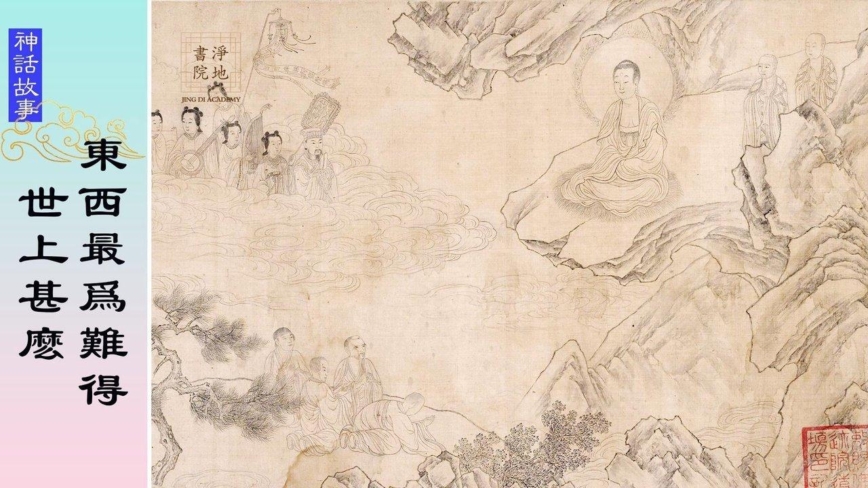 神話故事
世上甚麼
東西最爲難得
淨地
書院
JING DI ACADEMY